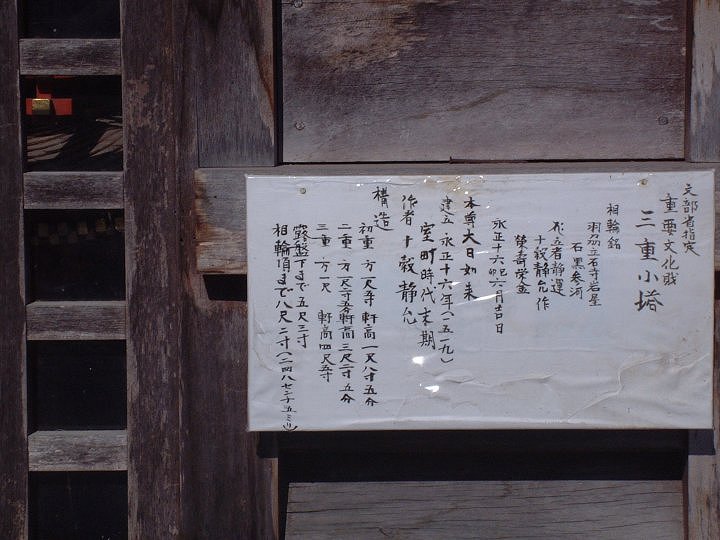 文部省指定
重要文化財
三重小塔
相輪銘
羽州立石寺岩屋
石黒参河
願立者静運
十穀静允作
榮壽栄金
永正十六己卯六月吉日
本尊大日如来
建立 永正十六年(一五一九)
室町時代末期
作者 十穀静允
構造
初重 方一尺二寸 軒高一尺八寸五分
二重 方一尺一寸五分 軒高三尺二寸五分
三重 方一尺 軒高四尺五寸
露盤下まで五尺三寸
相輪頂まで八尺二寸(二四八センチ五ミリ)